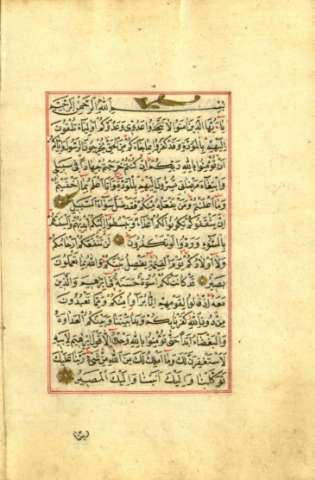 بِسْمِ اللهِ الرَّحْمٰنِ الرَّحِيمِ
يَاءَيُّهَا الَّذِينَ اٰمَنُوا لَا تَتَّخِذُوا عَدُوِّي وَعَدُوَّكُمْ اَوْلِيَاءَ تُلْقُونَ
اِلَيْهِمْ بِالْمَوَدَّةِ وَقَدْ كَفَرُوا بِمَا جَاءَكُمْ مِنَ الْحَقِّ يُخْرِجُونَ الرَّسُولَ وَاِيَّاكُمْ
اَنْ تُؤْمِنُوا بِاللهِ رَبِّكُمْ اِنْ كُنْتُمْ خَرَجْتُمْ جِهَادًا فِي سَبِيلِي
وَابْتِغَاءَ مَرْضَاتِي تُسِرُّونَ اِلَيْهِمْ بِالْمَوَدَّةِ وَاَنَا اَعْلَمُ بِمَا اَخْفَيْتُمْ
وَمَا اَعْلَنْتُمْ وَمَنْ يَفْعَلْهُ مِنْكُمْ فَقَدْ ضَلَّ سَوَاءَ السَّبِيلِ
اِنْ يَثْقَفُوكُمْ يَكُونُوا لَكُمْ اَعْدَاءً وَيَبْسُطُوا اِلَيْكُمْ اَيْدِيَهُمْ وَاَلْسِنَتَهُمْ
بِالسُّوءِ وَوَدُّوا لَوْ تَكْفُرُونَ لَنْ تَنْفَعَكُمْ اَرْحَامُكُمْ
وَلَا اَوْلَادُكُمْ يَوْمَ الْقِيٰمَةِ يَفْصِلُ بَيْنَكُمْ وَاللهُ بِمَا تَعْمَلُونَ
بَصِيرٌ قَدْ كَانَتْ لَكُمْ اُسْوَةٌ حَسَنَةٌ فِي اِبْرٰهِيمَ وَالَّذِينَ
مَعَهُ اِذْ قَالُوا لِقَوْمِهِمْ اِنَّا بُرَءٰؤُا مِنْكُمْ وَمِمَّا تَعْبُدُونَ
مِنْ دُونِ اللهِ كَفَرْنَا بِكُمْ وَبَدَا بَيْنَنَا وَبَيْنَكُمُ الْعَدَاوَةُ
وَالْبَغْضَاءُ اَبَدًا حَتّٰى تُؤْمِنُوا بِاللهِ وَحْدَهُ اِلَّا قَوْلَ اِبْرٰهِيمَ لِاَبِيهِ
لَاَسْتَغْفِرَنَّ لَكَ وَمَا اَمْلِكُ لَكَ مِنَ اللهِ مِنْ شَيْءٍ رَبَّنَا عَلَيْكَ
تَوَكَّلْنَا وَاِلَيْكَ اَنَبْنَا وَاِلَيْكَ الْمَصِيرُ
رَبَّنَا